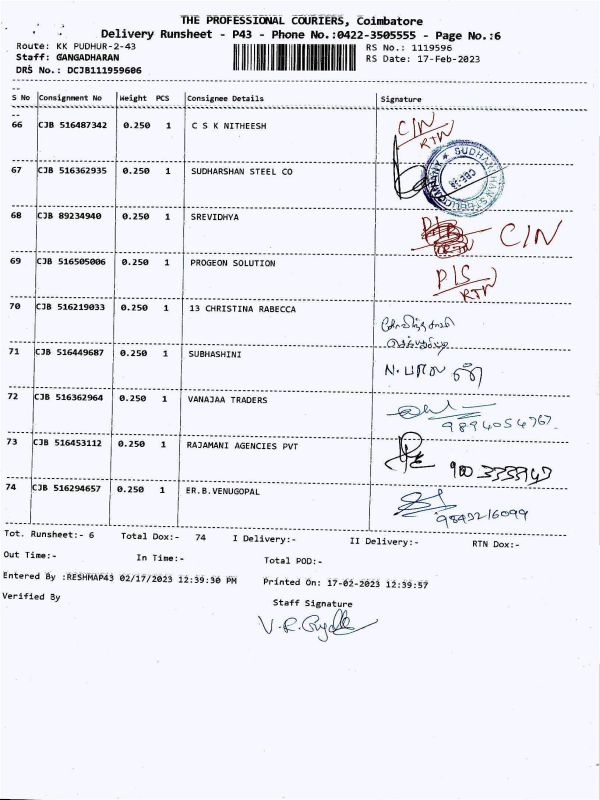 THE PROFESSIONAL COURIERS, Coimbatore
Delivery Runsheet - P43 - Phone No.:0422-3505555 - Page No.:6
Route: KK PUDHUR-2-43 RS No.: 1119596
Staff: GANGADHARAN RS Date: 17-Feb-2023
DRS No.: DCJB111959606
S No Consignment No Weight PCS Consignee Details Signature
66 CJB 516487342 0.250 1 C S K NITHEESH C/N
RTN
67 CJB 516362935 0.250 1 SUDHARSHAN STEEL CO
68 CJB 89234940 0.250 1 SREVIDHYA C/N
69 CJB 516505006 0.250 1 PROGEON SOLUTION P/S
RTN
70 CJB 516219033 0.250 1 13 CHRISTINA RABECCA
71 CJB 516449687 0.250 1 SUBHASHINI
72 CJB 516362964 0.250 1 VANAJAA TRADERS
9894054767
73 CJB 516453112 0.250 1 RAJAMANI AGENCIES PVT
74 CJB 516294657 0.250 1 ER.B.VENUGOPAL
9843216099
Tot. Runsheet:- 6 Total Dox:- 74 I Delivery:- II Delivery:- RTN Dox:-
Out Time:- In Time:- Total POD:-
Entered By :RESHMAP43 02/17/2023 12:39:30 PM Printed On: 17-02-2023 12:39:57
Verified By Staff Signature